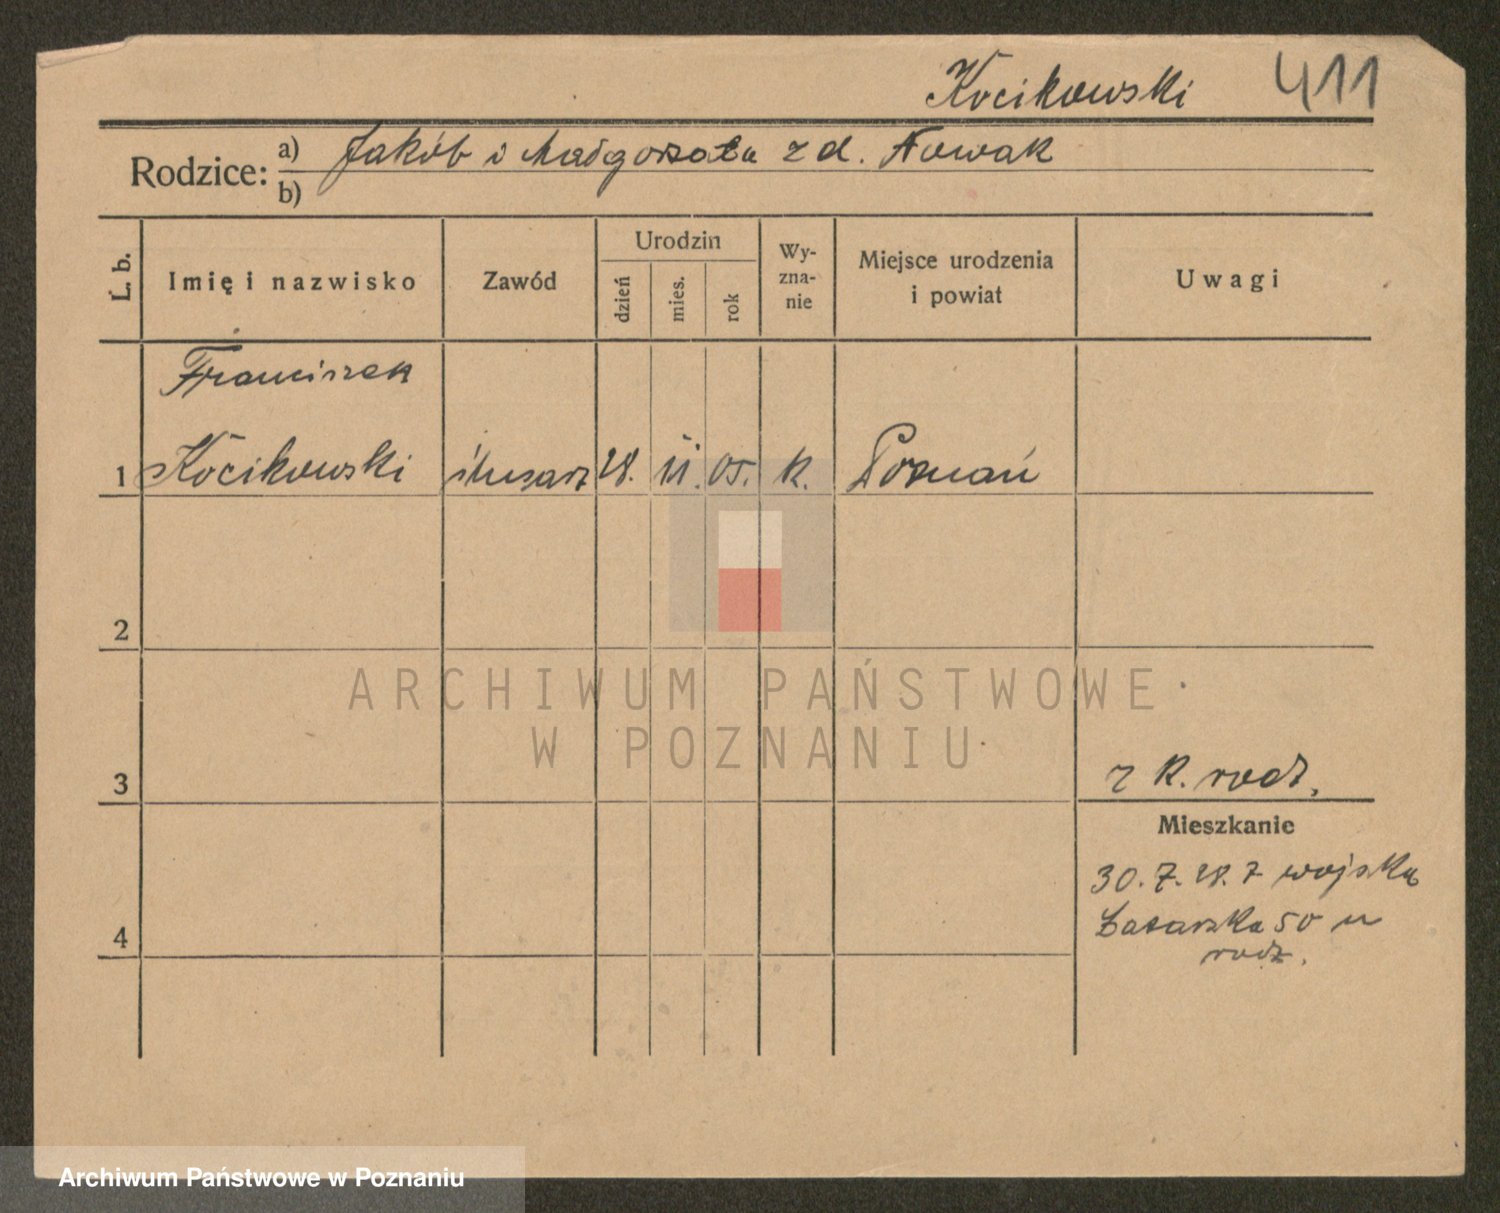 Kocikowski 411
Rodzice: a) Jakób i Małgorzata z d. Nowak
b)
L. b.
Imię i nazwisko
Zawód
Urodzin
dzień
mies.
rok
Wy-
zna-
nie
Miejsce urodzenia
i powiat
Uwagi
Franciszek
1 Kocikowski ślusarz 28. 05. k. Poznań
2
ARCHIWUM PAŃSTWOWE
W POZNANIU
3
z k. rodz.
Mieszkanie
30.7.28. z wojska
4
50 u
rodz.
Archiwum Państwowe w Poznaniu